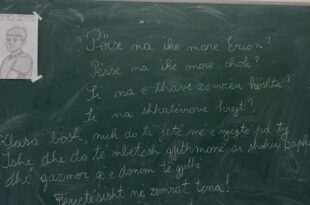 2010-2025
Përse na ike more Erion?
Përse na ike more shok?
Si na e thave zemrën kështu?
Si na shkatërrove krejt?
Klasa bosh, nuk do të jetë më e njejtë pa ty
Ishe dhe do të mbetesh gjithmonë ai shoku
dhe gazmor që e donim të gjithë
Përjetësisht në zemrat tona!